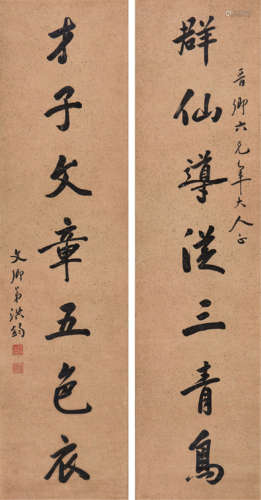 群仙導從三青鳥
晋卿六兄年大人正
才子文章五色衣
文卿弟洪鈞